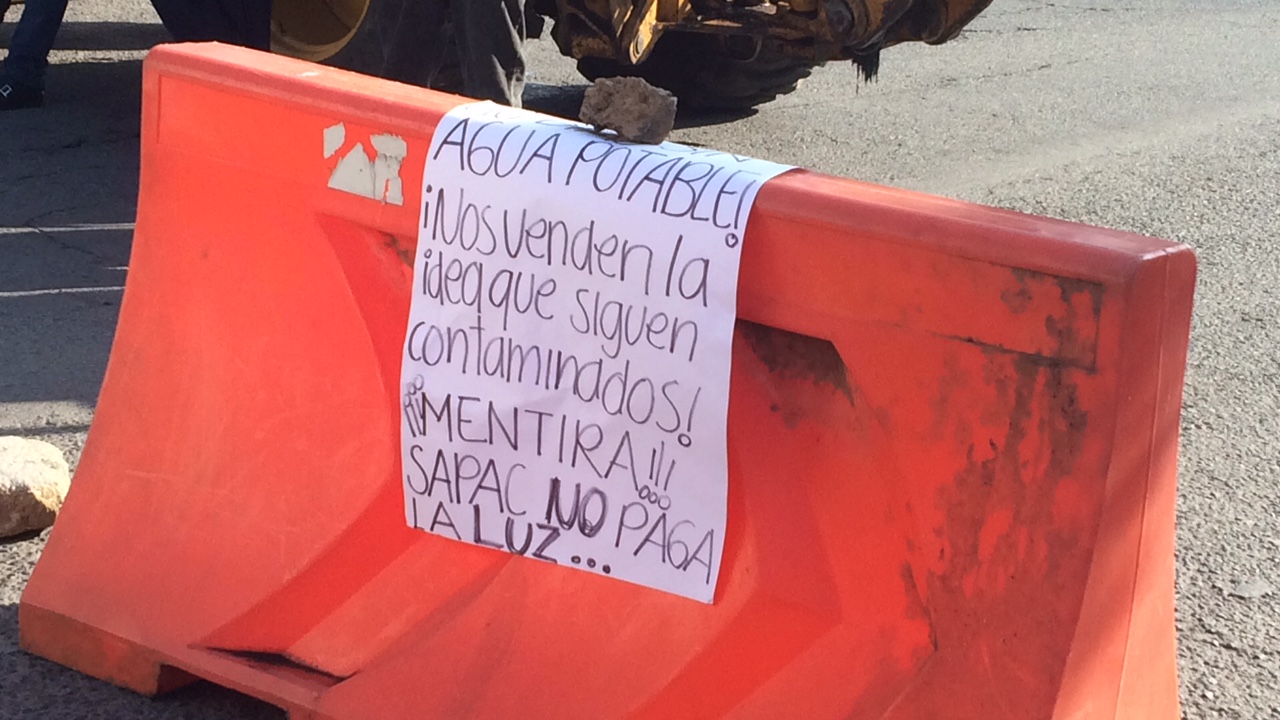 SIN
AGUA POTABLE!
¡Nos venden la
idea que siguen
contaminados!
¡¡¡MENTIRA!!!
SAPAC NO PAGA
LA LUZ...